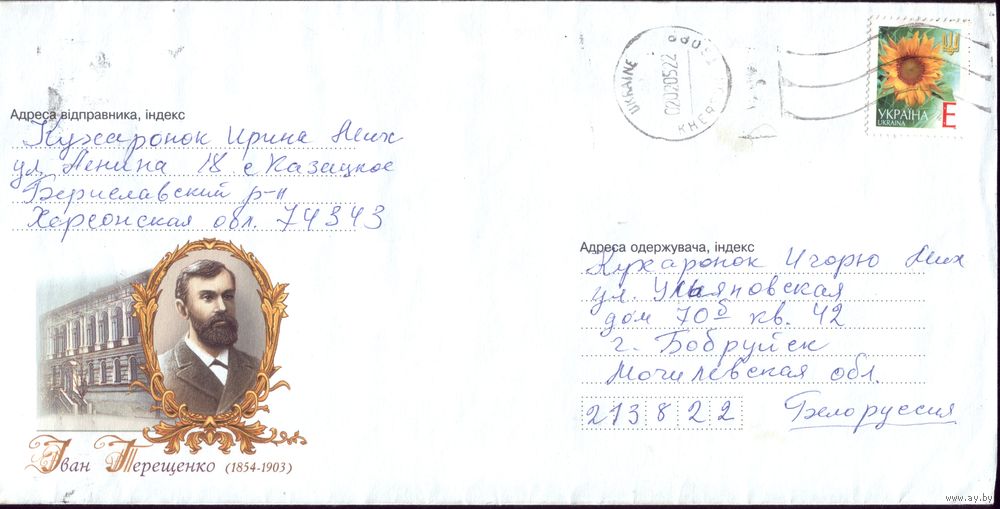 УКРАЇНА
UKRAINA
E
UKRAINE
02020522
Адреса відправника, індекс
Кухаронок Ирина Мих
ул. Ленина 18 с Казацкое
Бериславский р-н
Херсонская обл. 74343
Адреса одержувача, індекс
Кухаронок Игорю Мих
ул. Ульяновская
дом 70б кв. 42
г. Бобруйск
Могилевская обл.
213822 Белоруссия
Іван Терещенко (1854-1903)
www.ay.by